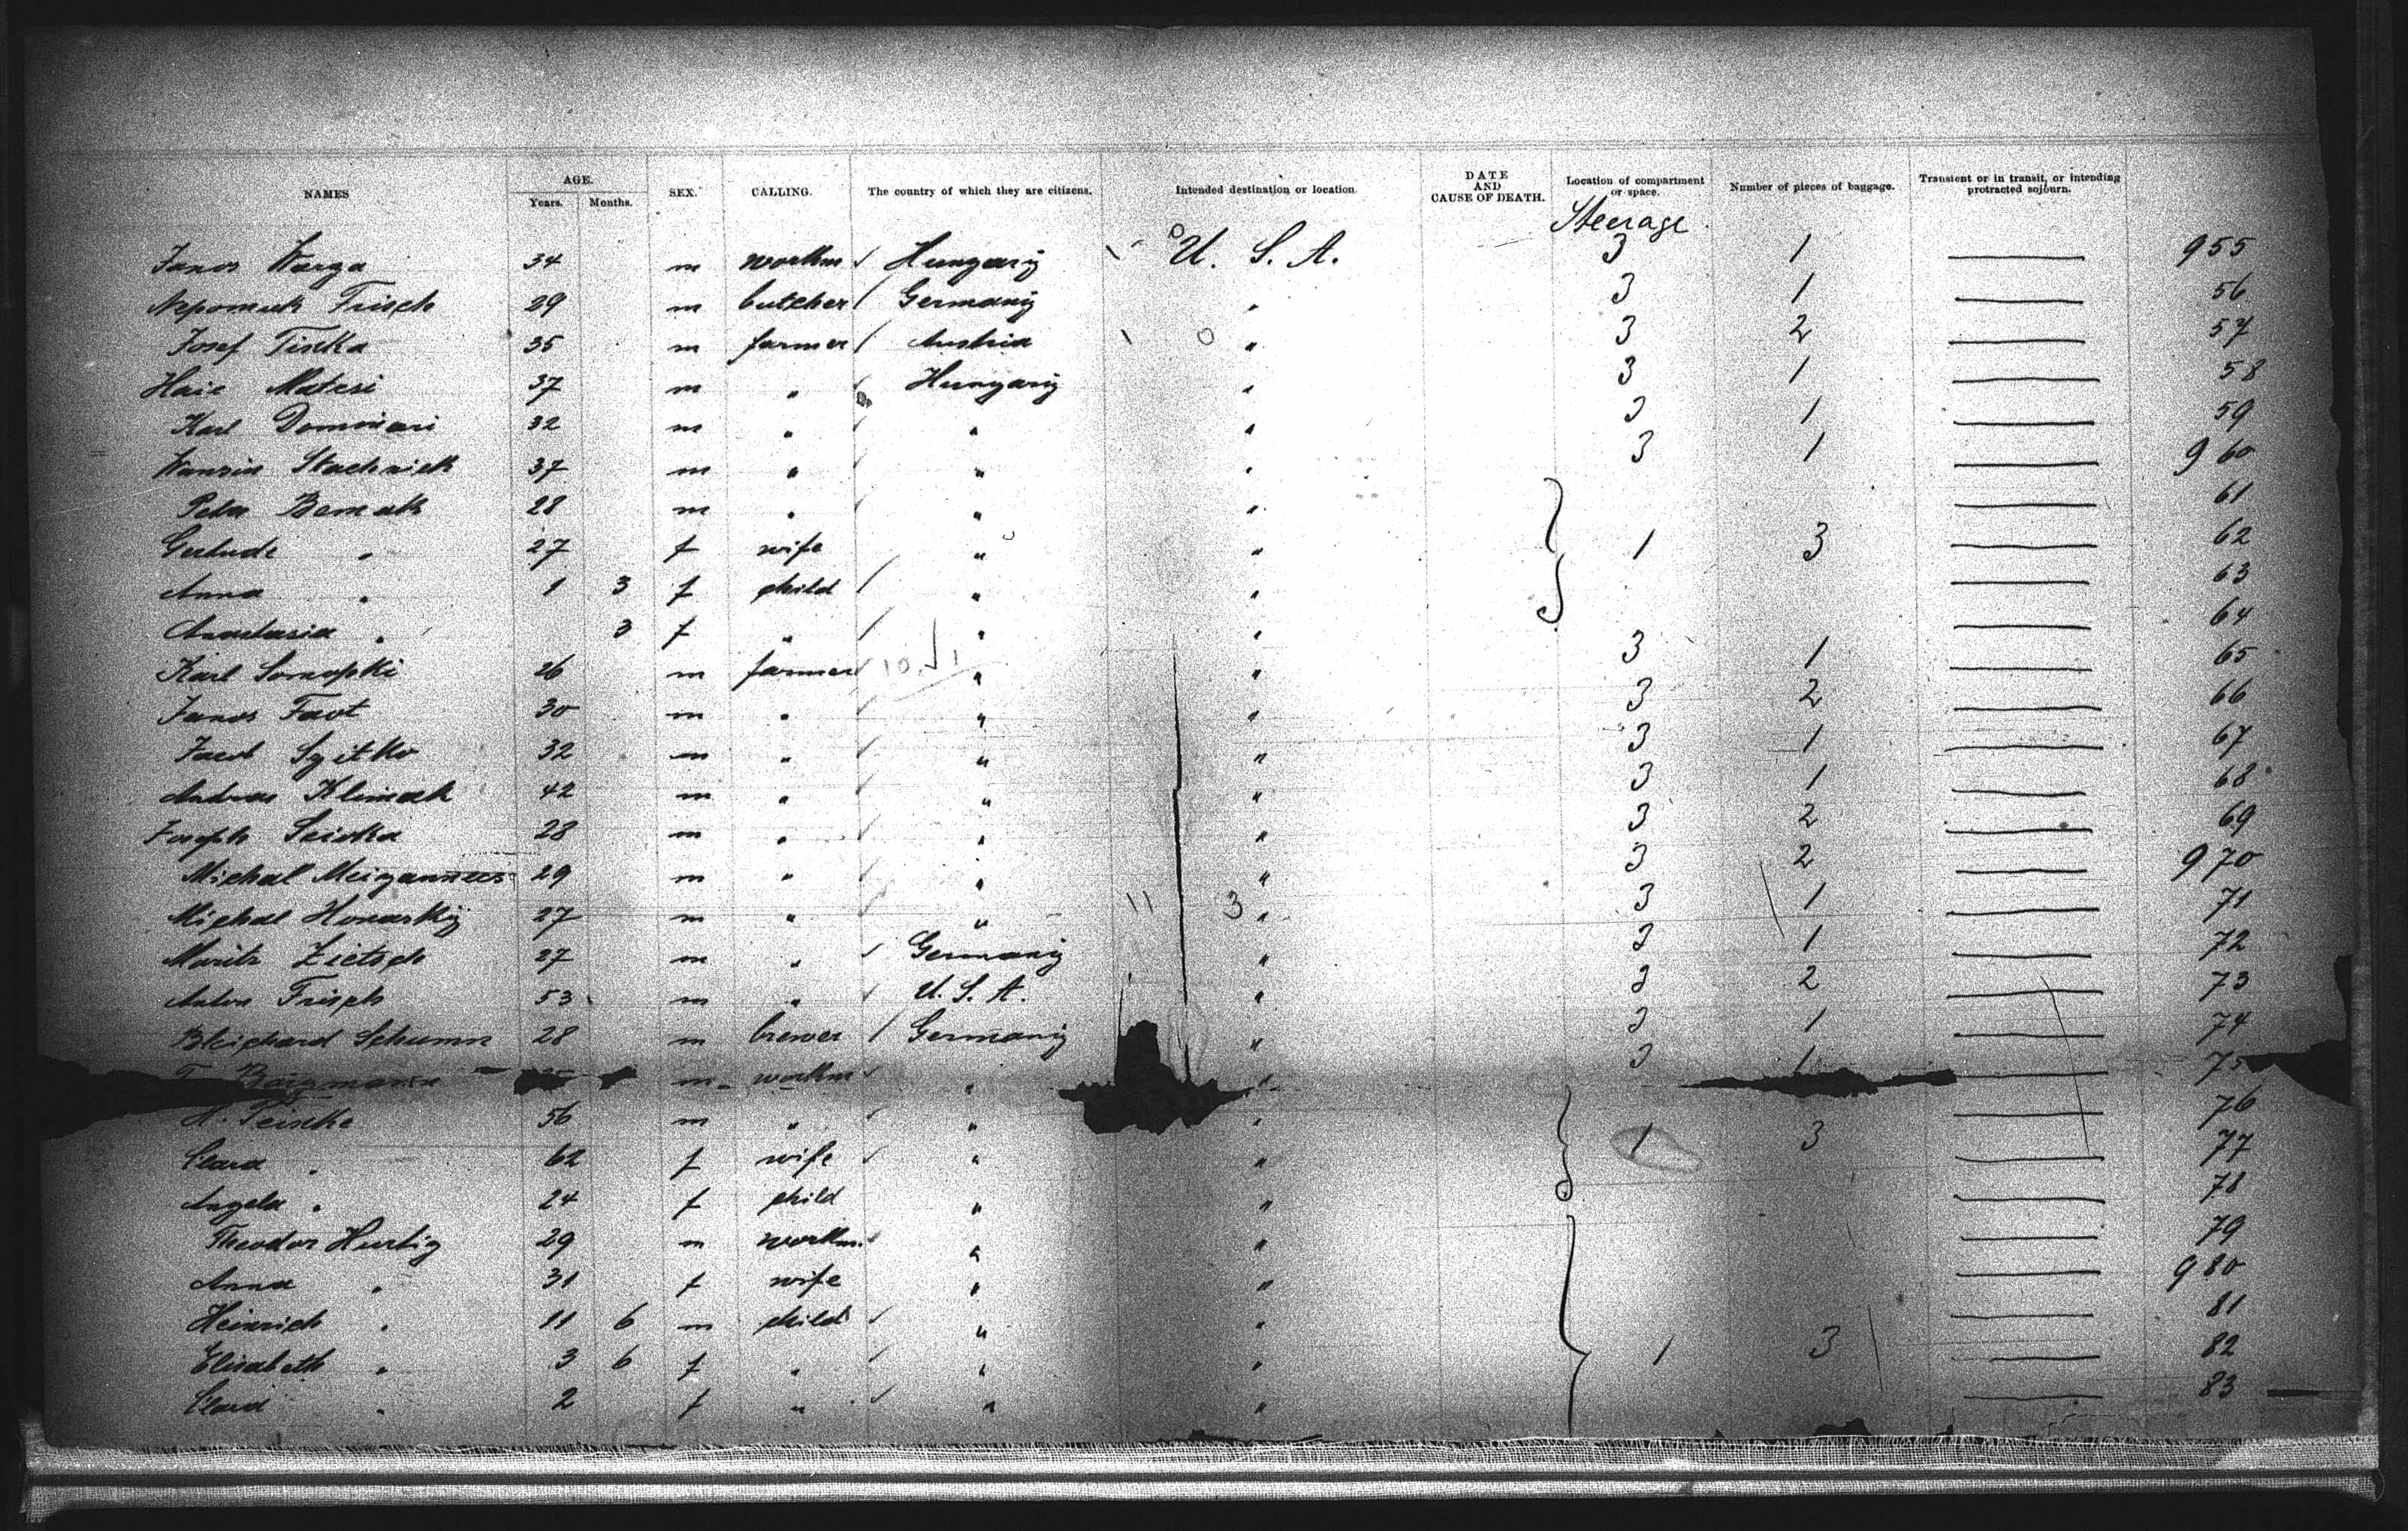 NAMES AGE. Years. Months. SEX. CALLING. The country of which they are citizens. Intended destination or location. DATE AND CAUSE OF DEATH. Location of compartment or space. Number of pieces of baggage. Transient or in transit, or intending protracted sojourn.
Steerage
Janos Varga 34 m workm Hungarÿ U. S. A. 3 1 — 955
Nepomuk Frisch 29 m butcher Germanÿ " 3 1 — 56
Josef Tiska 35 m farmer Austria " 3 2 — 57
Matesi 37 m " Hungarÿ " 3 1 — 58
Karl 32 m " " " 3 1 — 59
Stachnick 37 m " " " 3 1 — 960
Peter Bemak 28 m " " " — 61
Gertrude " 27 f wife " " 1 3 — 62
Anna " 1 3 f child " " — 63
Anastasia " 3 f " " " — 64
Karl 26 m farmer " " 3 1 — 65
Janos 30 m " " " 3 2 — 66
Jacob 32 m " " " 3 1 — 67
Andras Klimak 42 m " " " 3 1 — 68
Joseph 28 m " " " 3 2 — 69
Michal 29 m " " " 3 2 — 970
Michal 27 m " " 3 " 3 1 — 71
Moritz Zietsch 27 m " Germanÿ " 3 1 — 72
Anton Frisch 53 m " U. S. A. " 3 2 — 73
Schumn 28 m brewer Germanÿ " 3 1 — 74
m workm " " 3 1 — 75
H. 56 m " " " — 76
Clara " 62 f wife " " 1 3 — 77
Angela " 24 f child " " — 78
Theodor Hertig 29 m workm. " " — 79
Anna " 31 f wife " " — 980
Heinrich " 11 6 m child " " — 81
Elisabeth " 3 6 f " " " 1 3 — 82
" 2 f " " " — 83